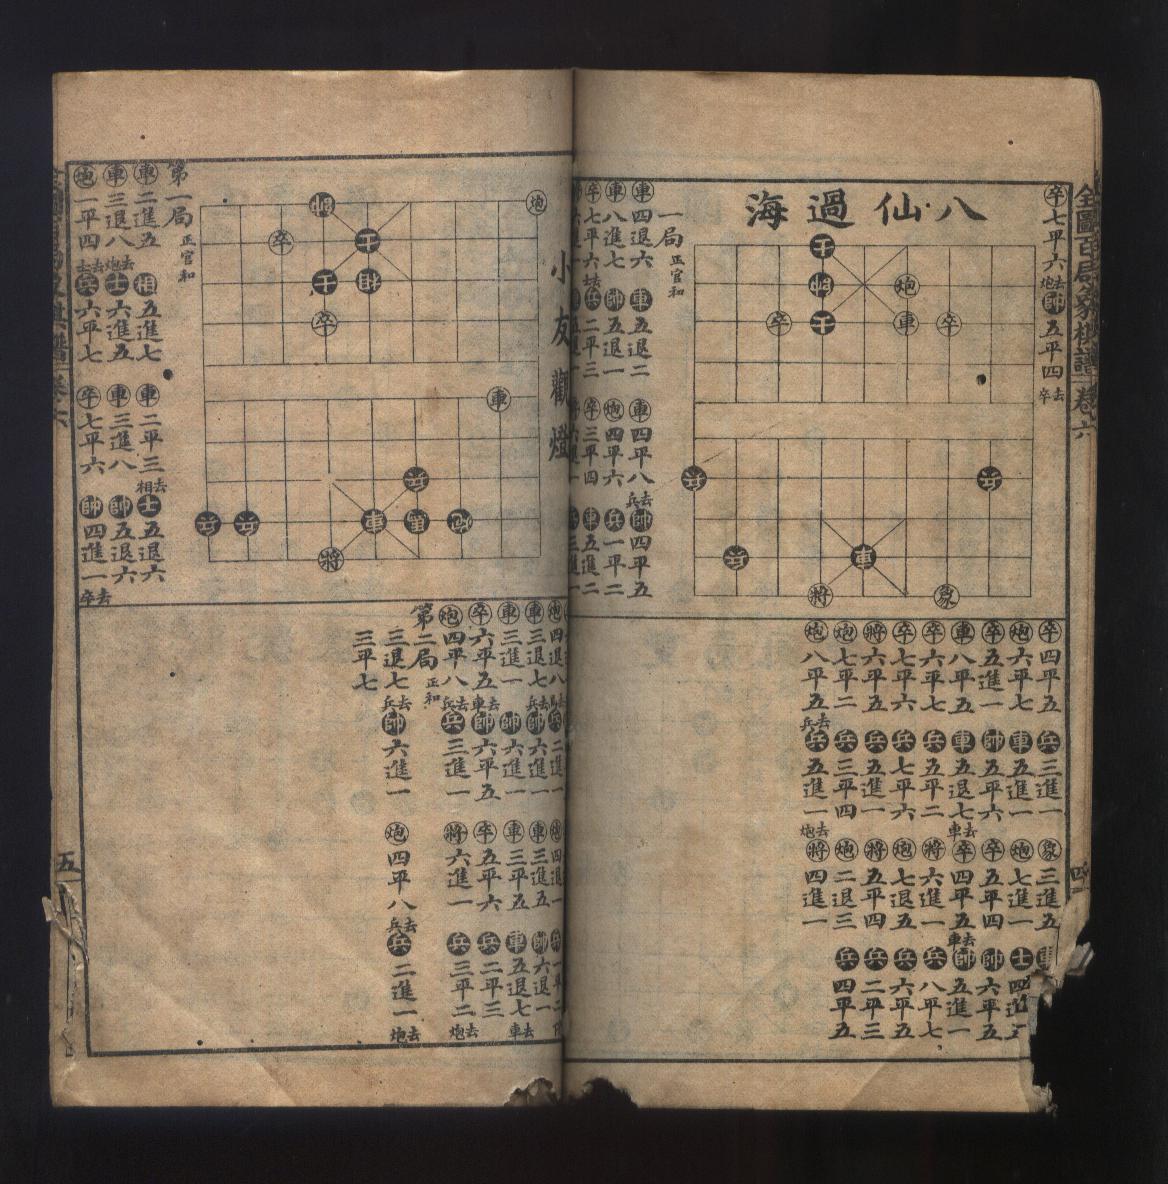 全圖百局象棋譜 卷六 四
卒七平六炮去 帥五平四卒去
八仙過海
士
將 炮
卒 士 車 卒
兵 兵
兵 車
將 象
一局 正官和
車四退六 車五退二 車四平八兵去 帥四平五
車八進七 帥五退一 炮四平六 兵一平二
卒七平六士去 兵二平三 卒三平四 車五進二
卒四平五 兵三進一 象三進五 車
炮六平七 車五進一 炮七進一 士四進五
卒五進一 帥五平六 卒五平四 帥六平五
車八平五 車五退七車去 卒四平五車去 帥五進一
卒六平七 兵五平二 將六進一 兵八平七
卒七平六 兵七平六 炮七退五 兵六平五
將六平五 兵五進一 將五平四 兵二平三
炮七平二 兵三平四 炮二退三 兵四平五
炮八平五兵去 兵五進一炮去 將四進一
小友觀燈
帥 炮
卒 士
士 相
卒
車
兵
兵 兵 車 馬 炮
將
第一局 正官和
車二進五 相五進七 車二平三相去 士五退六
車三退八炮去 士六進五 車三進八 帥五退六
炮一平四士去 兵六平七 卒七平六 帥四進一卒去
炮四退八馬去 兵二進一 炮四退一 兵一平二
車三退七兵去 帥六進一 車三進五 帥六退一
車三進一 帥六進一 車三平五 車五退七車去
卒六平五車去 帥六平五 卒五平六 兵二平三
炮四平八兵去 兵三進一 將六進一 兵三平二炮去
第二局 正和
三退七兵去 帥六進一 炮四平八兵去 兵二進一炮去
三平七
五